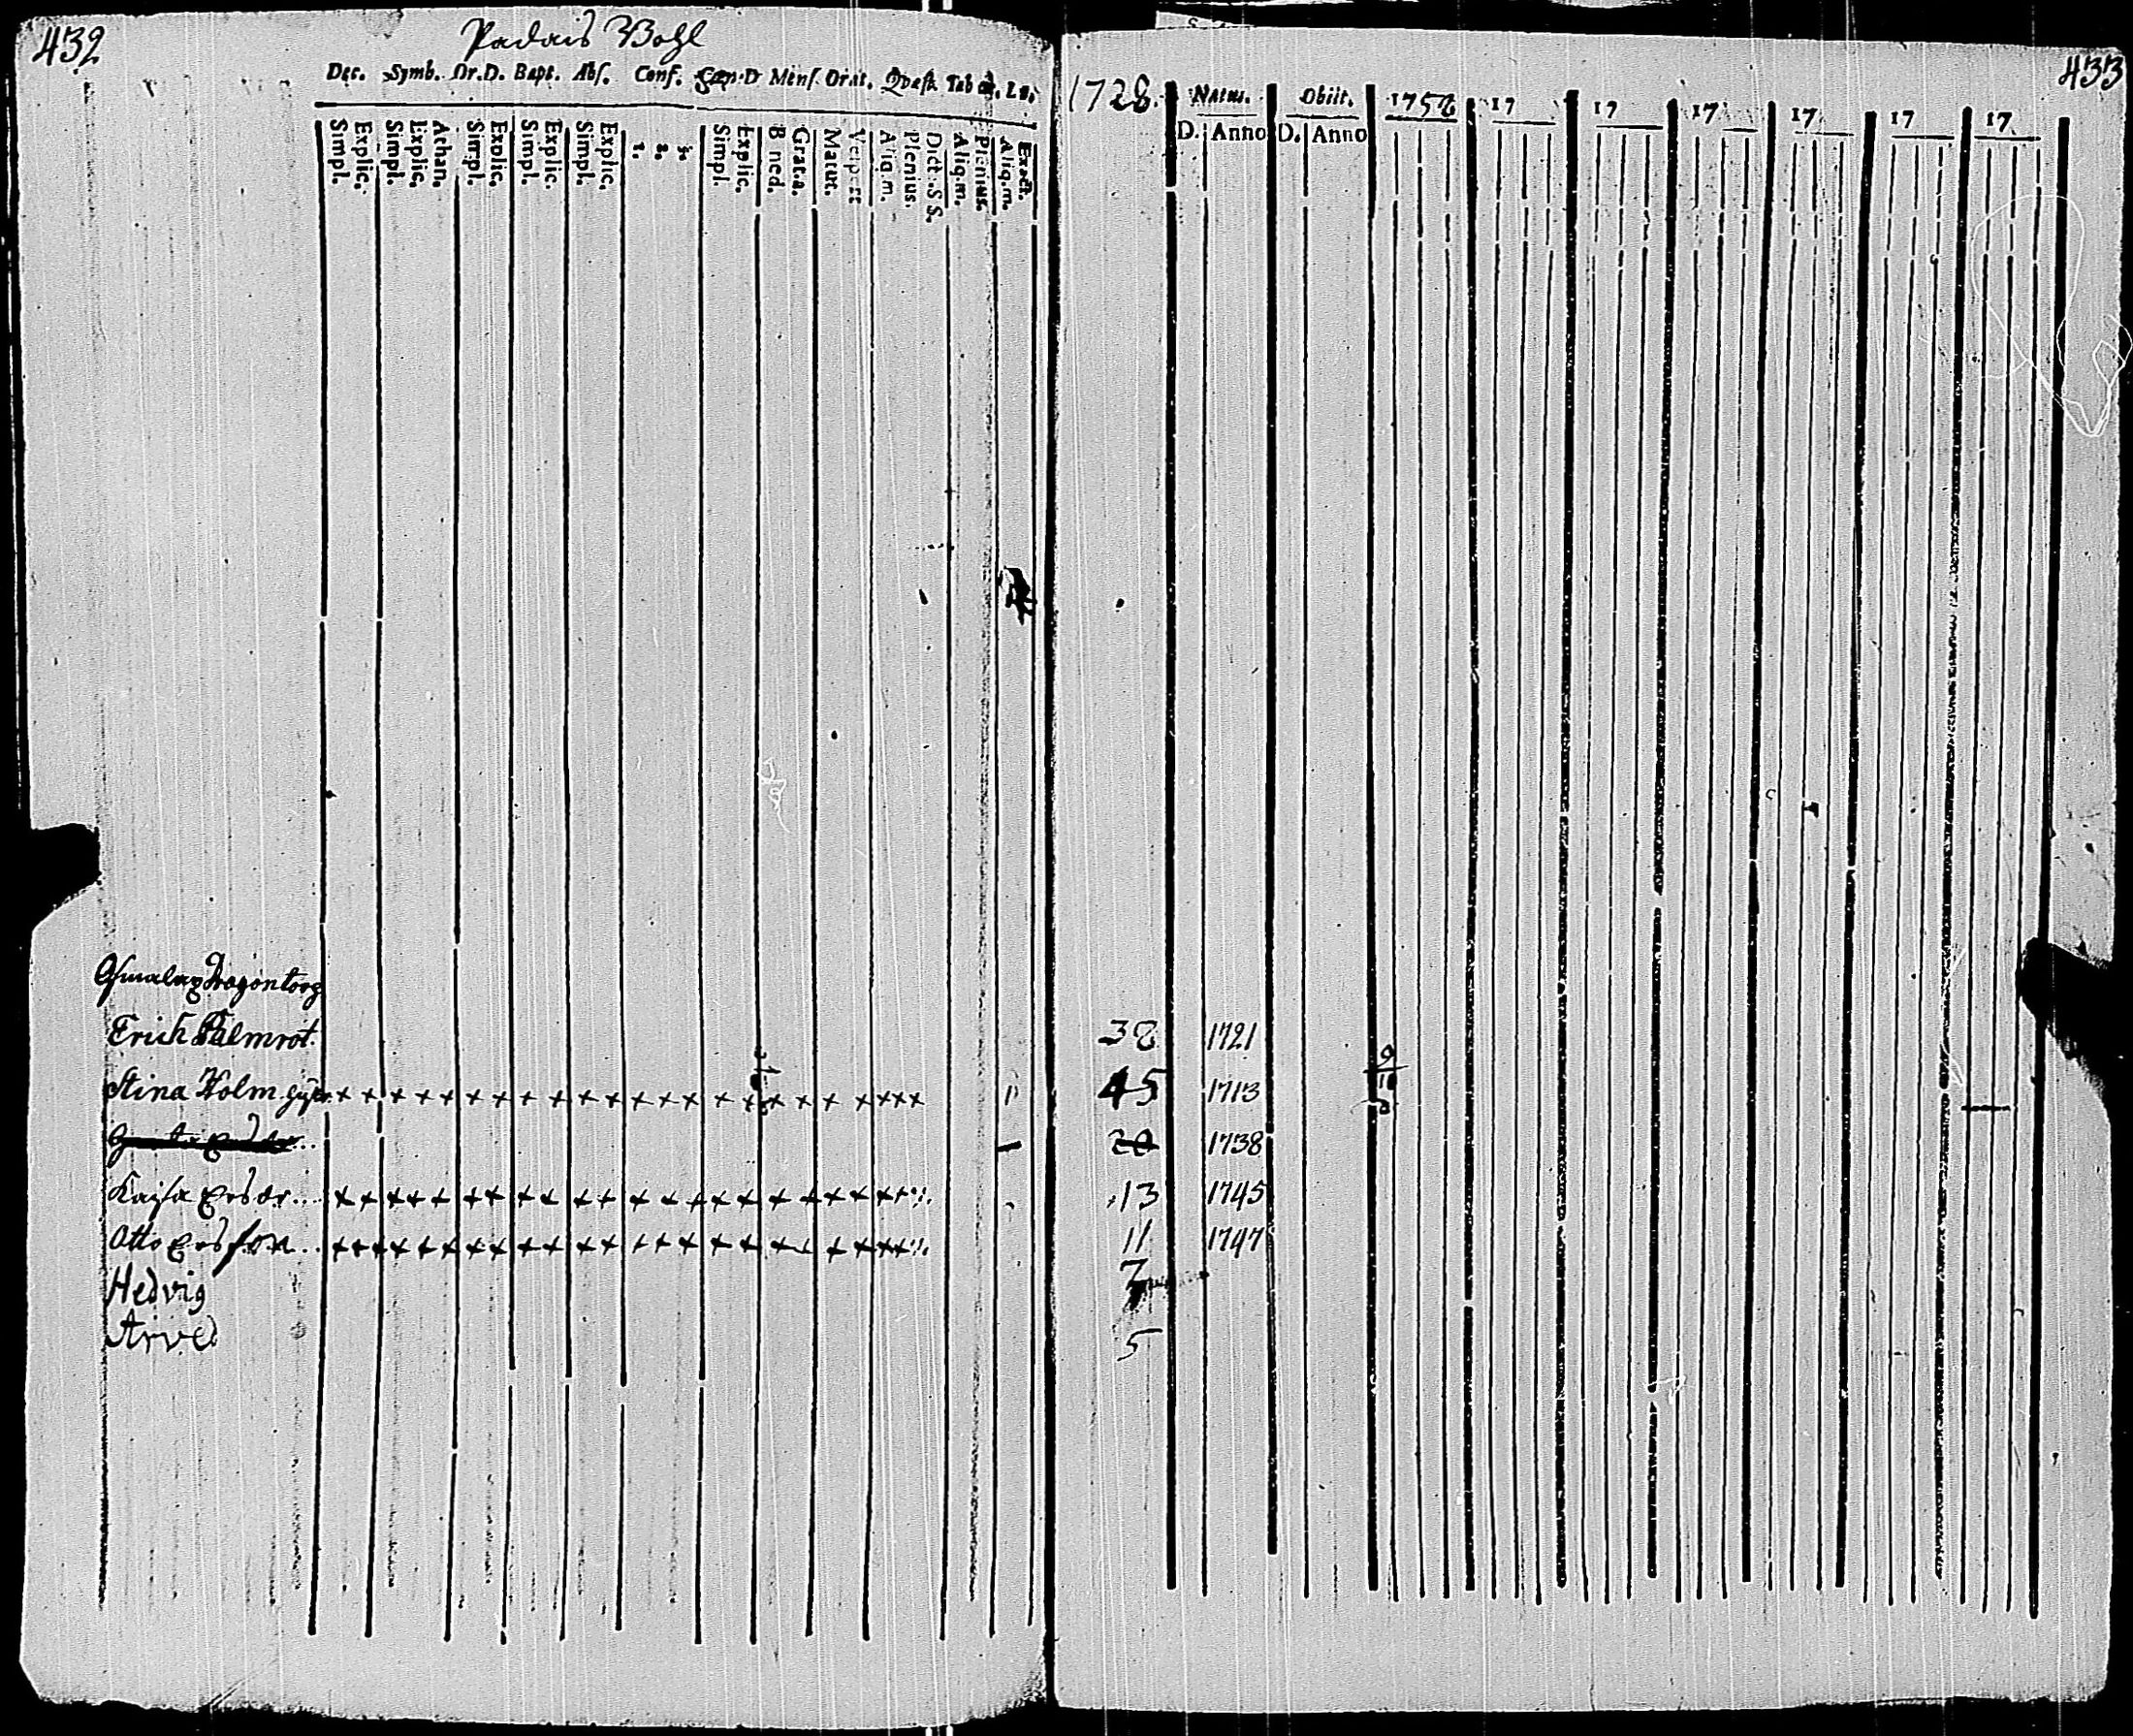 432
Padais Bohl
Dec. Symb. Or.D. Bapt. Abs. Conf. Cœn.D Mens. Orat. Qvæst. Tab œ. Lu.
Simpl. Explic. Simpl. Explic. Athan. Simpl. Explic. Simpl. Explic. Simpl. Explic. 1. 2. 3. Simpl. Explic. Bened. Grat.a. Matut. Vespert Aliq.m. Plenius. Dict. S S. Aliq.m. Plenius. Aliq.m. Exact.
Erich Palmrot.
Stina Holm
Kajsa Ersdr...
Otto Ersson..
Hedvig
Arved
433
1728. Natus. Obiit. 1758 17 17 17 17 17 17
D. Anno D. Anno
38 1721
45 1713
20 1738
13 1745
11 1747
7
5